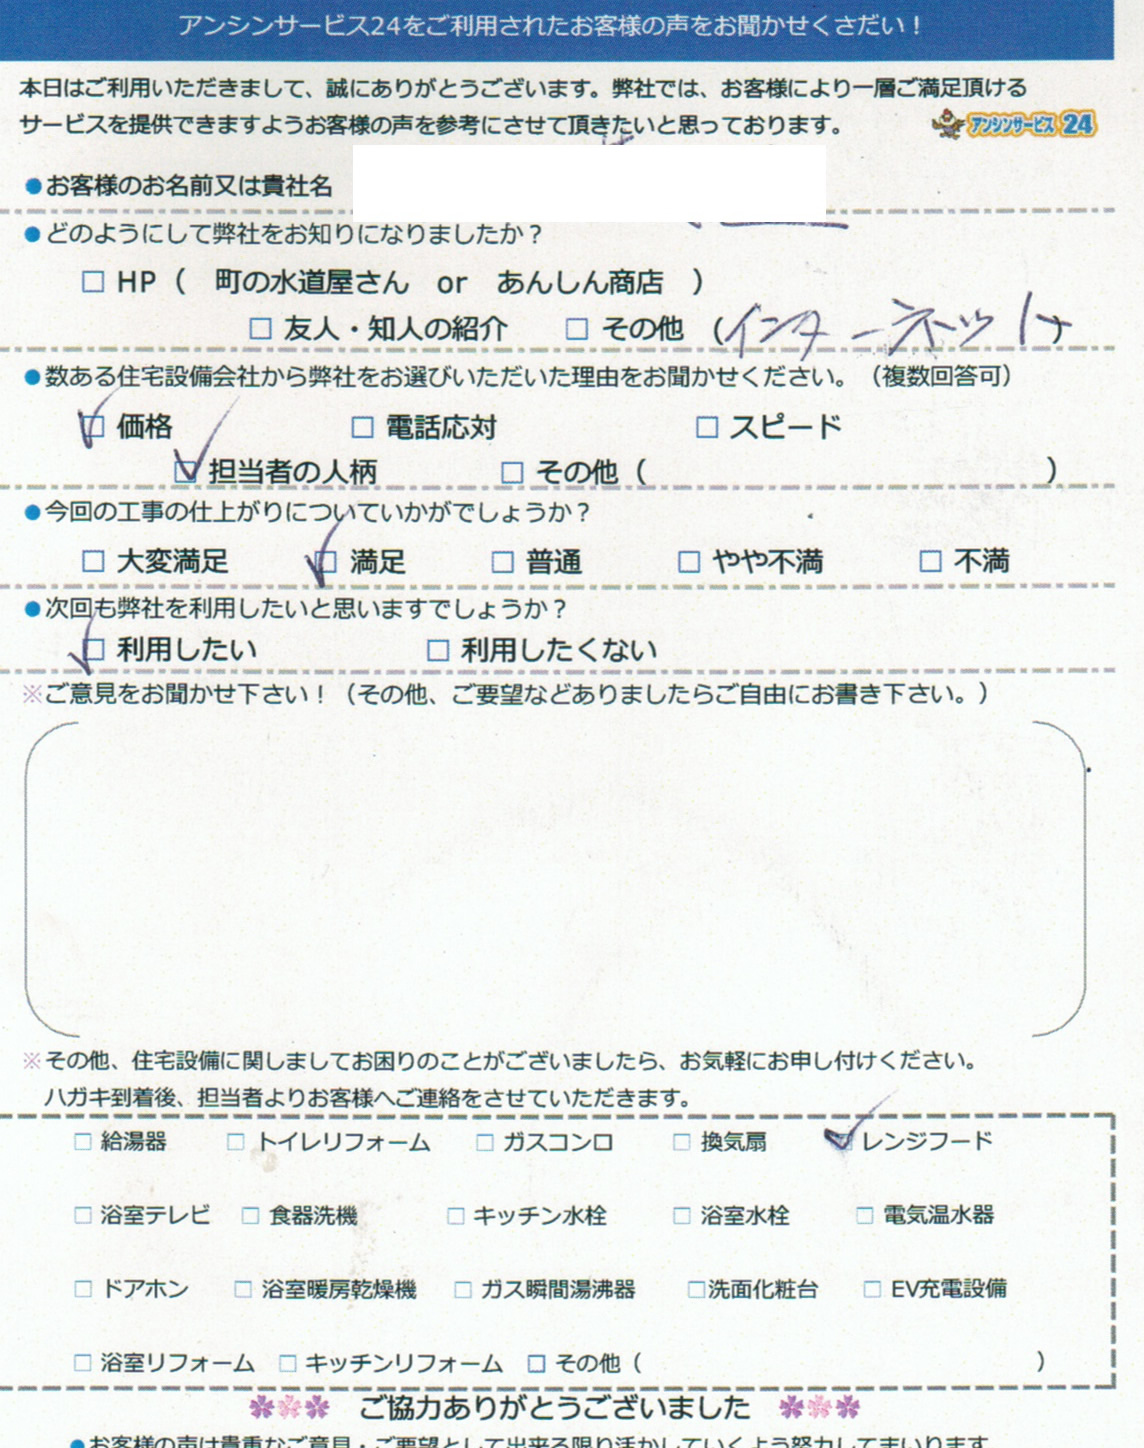 アンシンサービス24をご利用されたお客様の声をお聞かせくさだい！
本日はご利用いただきまして、誠にありがとうございます。弊社では、お客様により一層ご満足頂ける
サービスを提供できますようお客様の声を参考にさせて頂きたいと思っております。
アンシンサービス 24
●お客様のお名前又は貴社名
●どのようにして弊社をお知りになりましたか？
□ HP（ 町の水道屋さん or あんしん商店 ）
□ 友人・知人の紹介 □ その他 （インターネット）
●数ある住宅設備会社から弊社をお選びいただいた理由をお聞かせください。（複数回答可）
☑ 価格 □ 電話応対 □ スピード
☑ 担当者の人柄 □ その他（ ）
●今回の工事の仕上がりについていかがでしょうか？
□ 大変満足 ☑ 満足 □ 普通 □ やや不満 □ 不満
●次回も弊社を利用したいと思いますでしょうか？
☑ 利用したい □ 利用したくない
※ご意見をお聞かせ下さい！（その他、ご要望などありましたらご自由にお書き下さい。）
※その他、住宅設備に関しましてお困りのことがございましたら、お気軽にお申し付けください。
ハガキ到着後、担当者よりお客様へご連絡をさせていただきます。
□ 給湯器 □ トイレリフォーム □ ガスコンロ □ 換気扇 ☑ レンジフード
□ 浴室テレビ □ 食器洗機 □ キッチン水栓 □ 浴室水栓 □ 電気温水器
□ ドアホン □ 浴室暖房乾燥機 □ ガス瞬間湯沸器 □洗面化粧台 □ EV充電設備
□ 浴室リフォーム □ キッチンリフォーム □ その他（ ）
ご協力ありがとうございました
●お客様の声は貴重なご意見・ご要望として出来る限り活かしていくよう努力してまいります